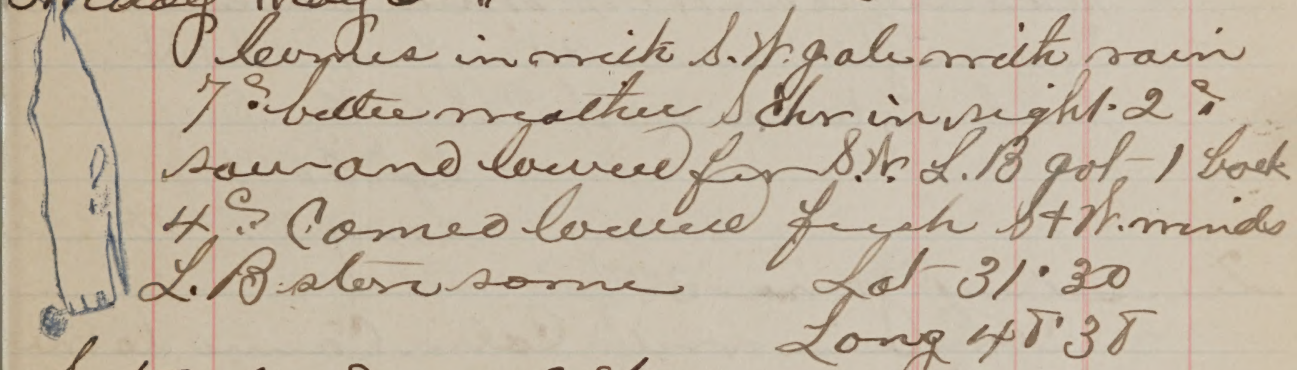 Comes in with S.W. gale with rain
7 S. better weather Schr in sight. 2 S.
saw and lowered for S.W. L.B got 1 back
4 S. Comed lowered fresh S + W. winds
L.B. stove some Lat 31.30
Long 48.38